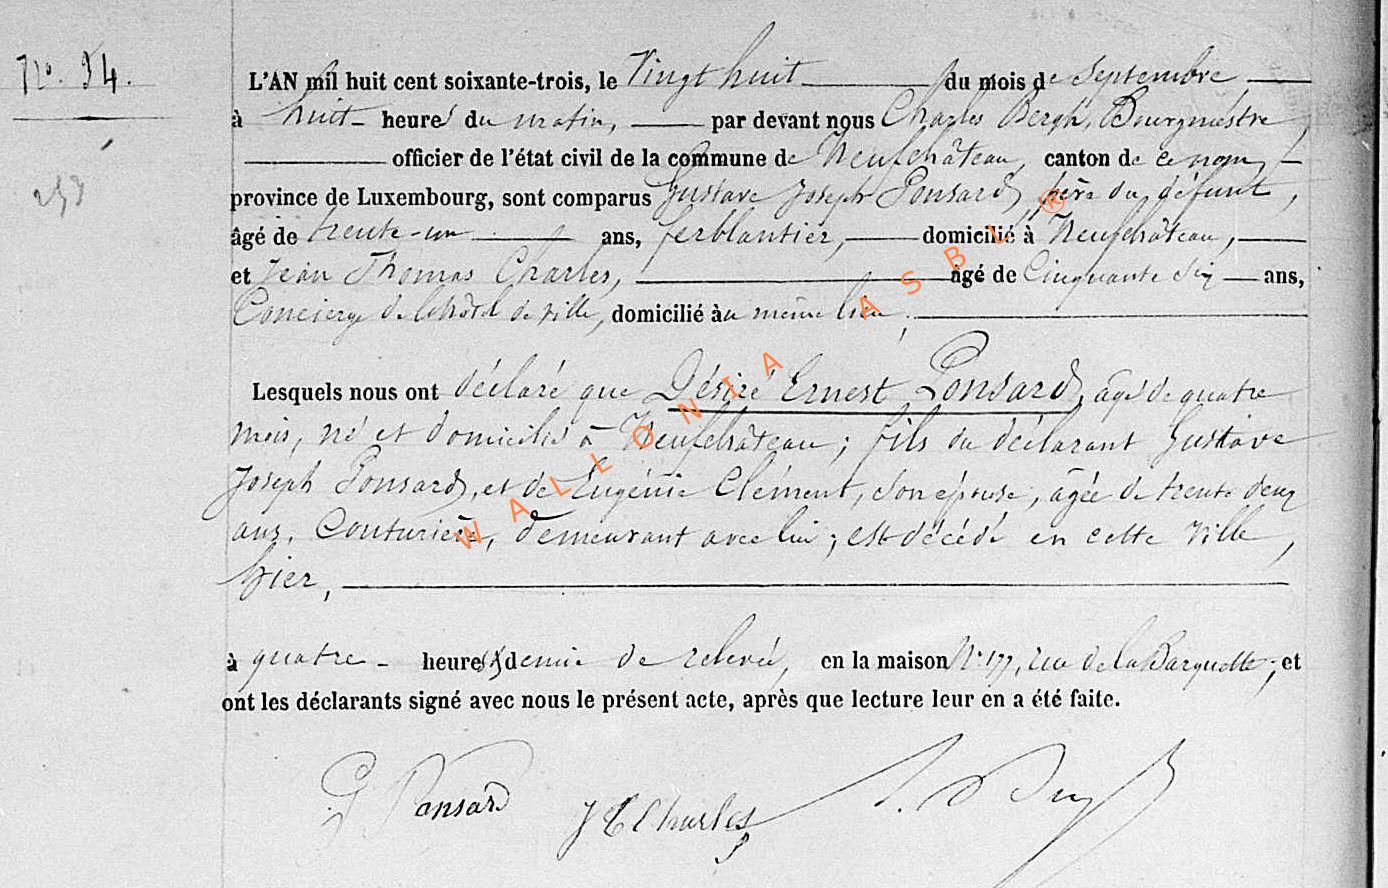 N°. 54.
L'AN mil huit cent soixante-trois, le Vingt huit du mois de Septembre
à huit heures du matin, par devant nous Charles Bergh, Bourgmestre,
officier de l'état civil de la commune de Neufchâteau, canton de ce nom,
province de Luxembourg, sont comparus Gustave Joseph Ponsard, père du défunt,
âgé de trente-un ans, ferblantier, domicilié à Neufchâteau,
et Jean Thomas Charles, âgé de Cinquante six ans,
Concierge de l'hôtel de ville, domicilié au même lieu,
Lesquels nous ont déclaré que Désiré Ernest Ponsard, âgé de quatre
mois, né et domicilié à Neufchâteau; fils du déclarant Gustave
Joseph Ponsard, et de Eugénie Clément, son épouse, âgée de trente deux
ans, Couturière, demeurant avec lui; est décédé en cette Ville,
hier,
à quatre heures & demie de relevée, en la maison N° 177, rue de la Barquette; et
ont les déclarants signé avec nous le présent acte, après que lecture leur en a été faite.
G Ponsard JT Charles
WALLONIA ASBL ®